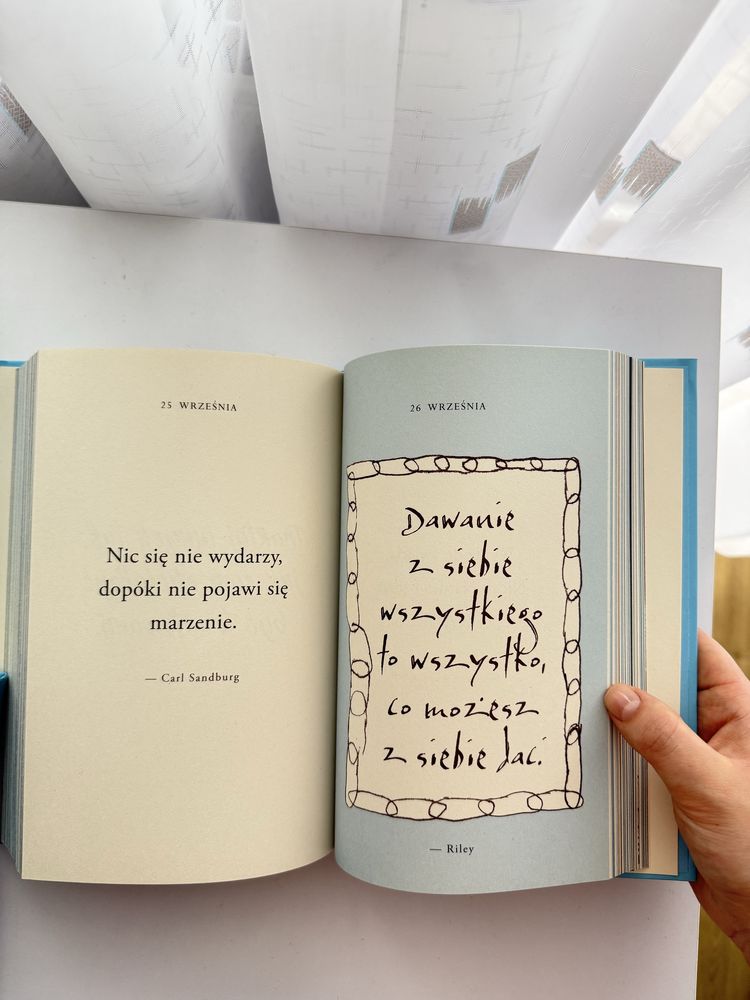 25 WRZEŚNIA
Nic się nie wydarzy,
dopóki nie pojawi się
marzenie.
— Carl Sandburg
26 WRZEŚNIA
Dawanie
z siebie
wszystkiego
to wszystko,
co możesz
z siebie dać.
— Riley